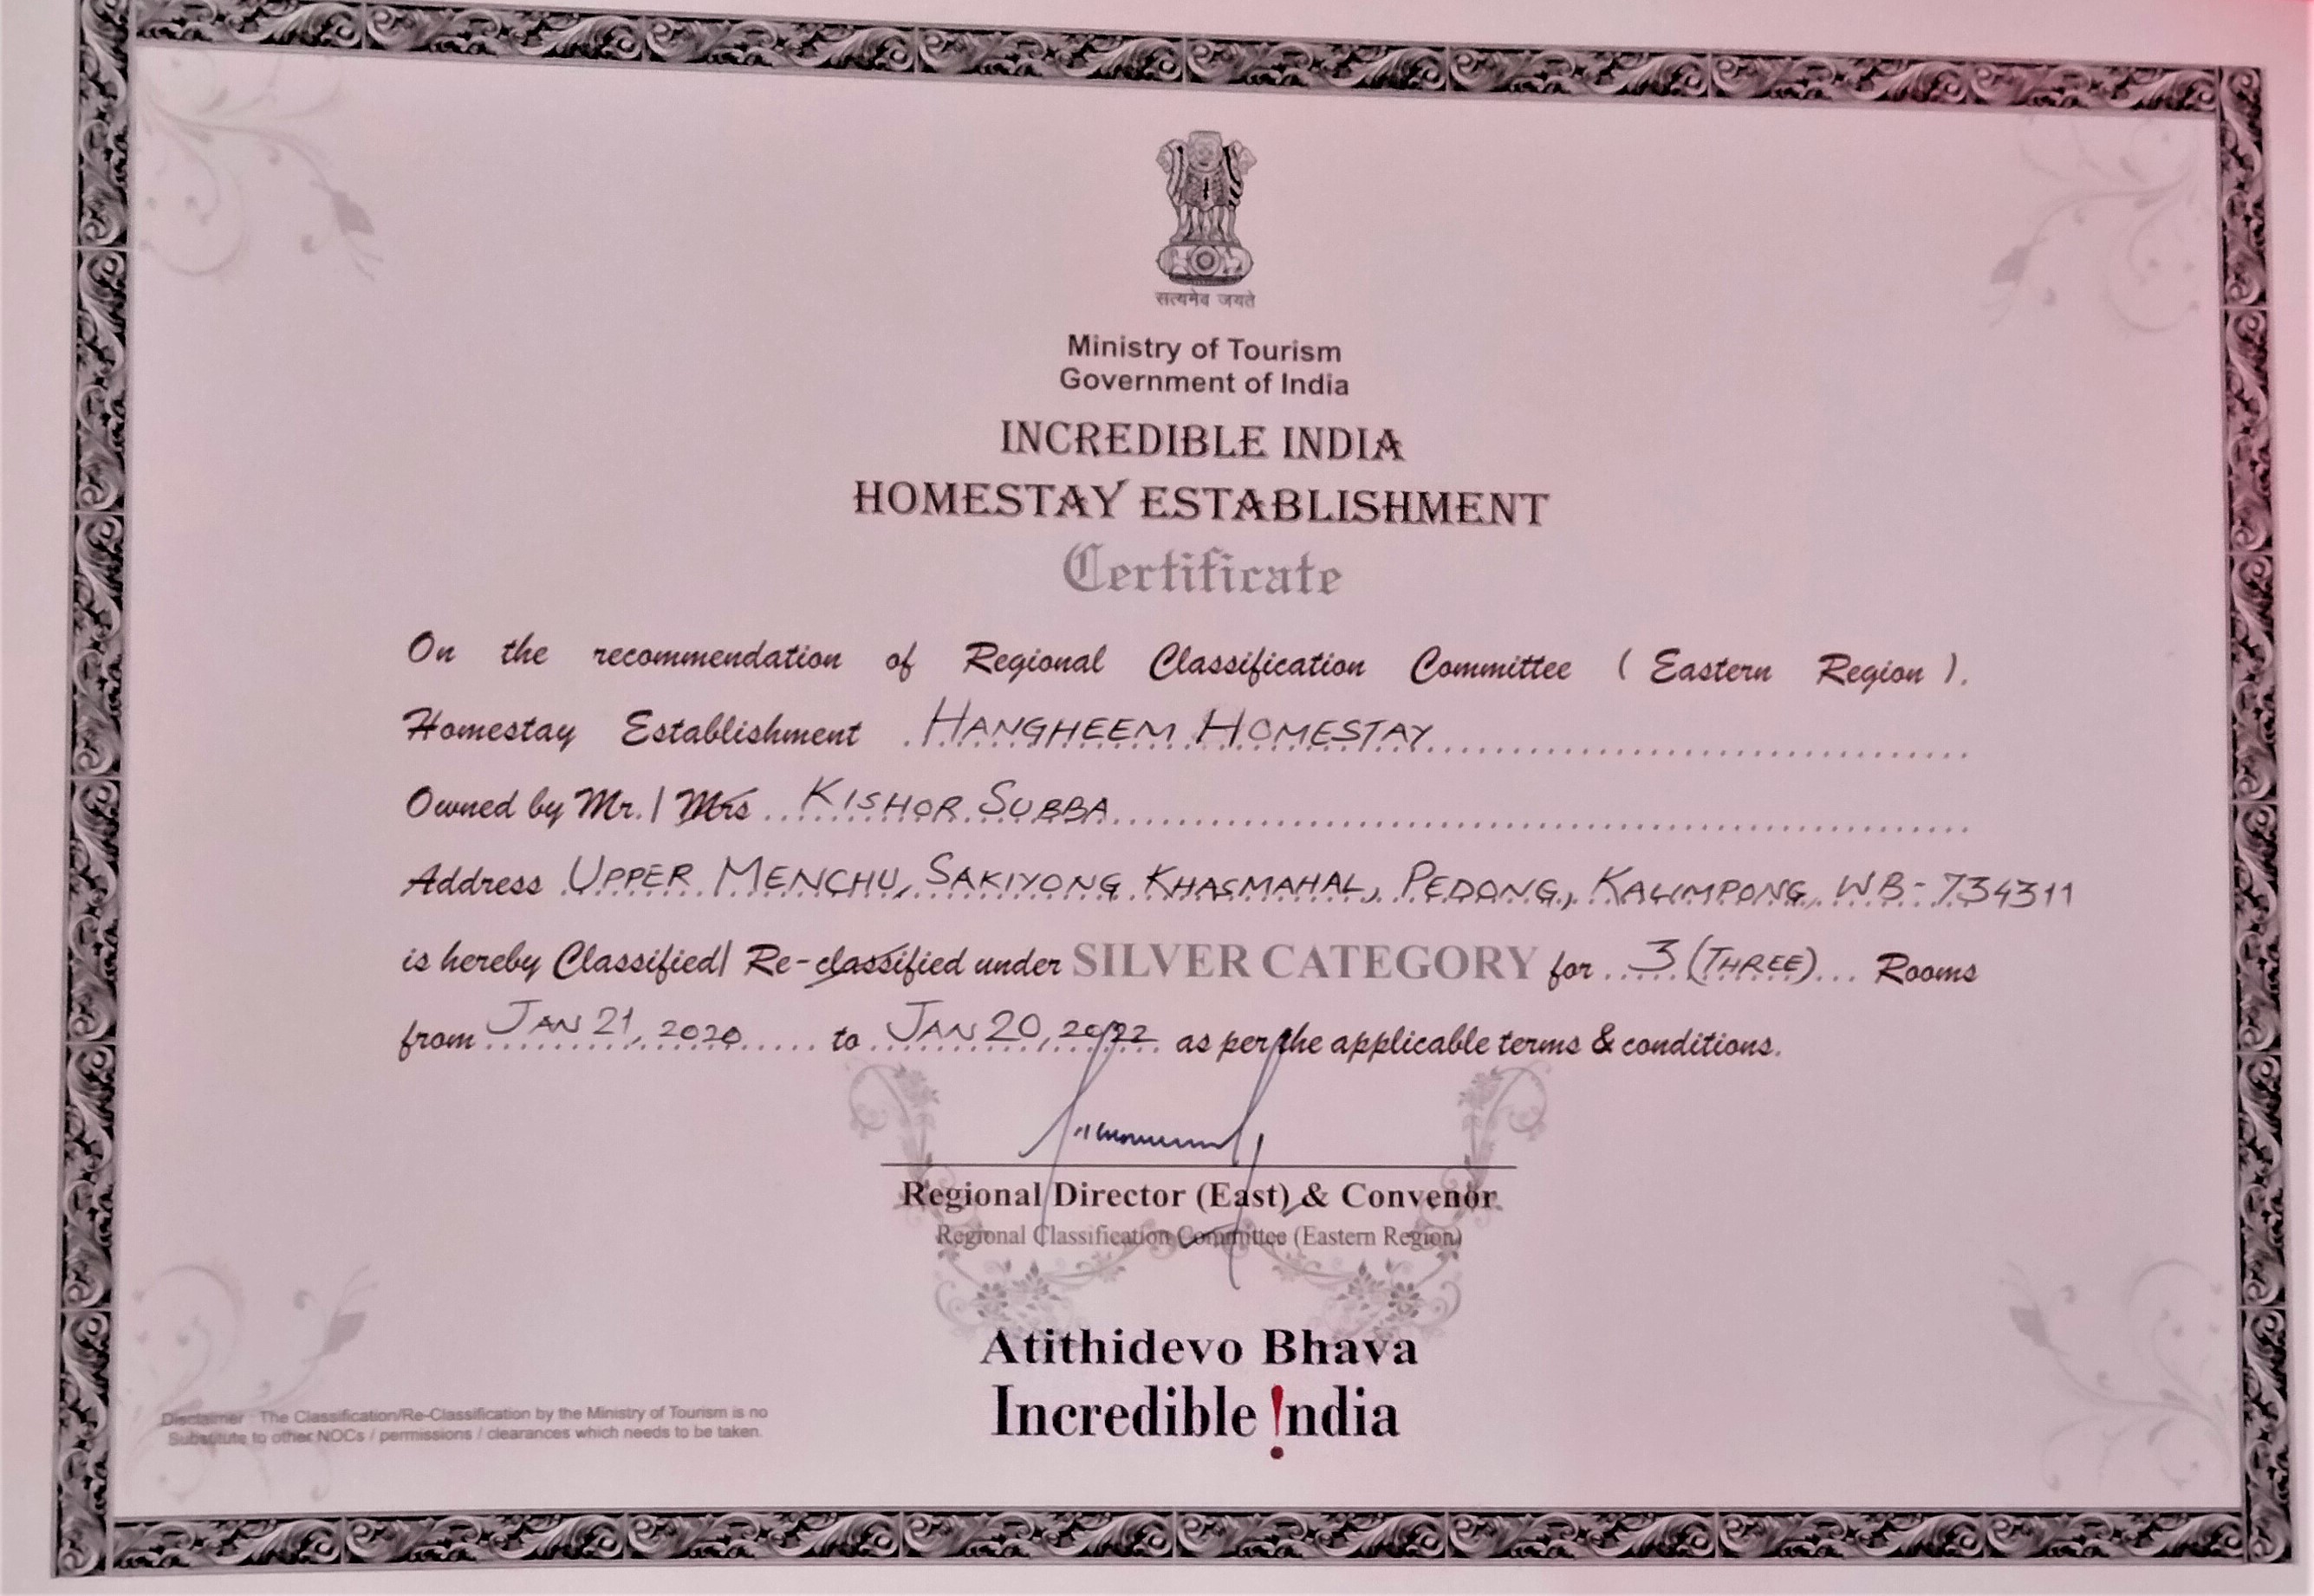 सत्यमेव जयते
Ministry of Tourism
Government of India
INCREDIBLE INDIA
HOMESTAY ESTABLISHMENT
Certificate
On the recommendation of Regional Classification Committee ( Eastern Region ).
Homestay Establishment HANGHEEM HOMESTAY
Owned by Mr. | Mrs KISHOR SUBBA
Address UPPER MENCHU, SAKIYONG KHASMAHAL, PEDONG, KALIMPONG, WB - 734311
is hereby Classified| Re-classified under SILVER CATEGORY for 3 (THREE) Rooms
from JAN 21, 2020 to JAN 20, 2022 as per the applicable terms & conditions.
Regional Director (East) & Convenor
Regional Classification Committee (Eastern Region)
Atithidevo Bhava
Incredible !ndia
Disclaimer : The Classification/Re-Classification by the Ministry of Tourism is no
Substitute to other NOCs / permissions / clearances which needs to be taken.